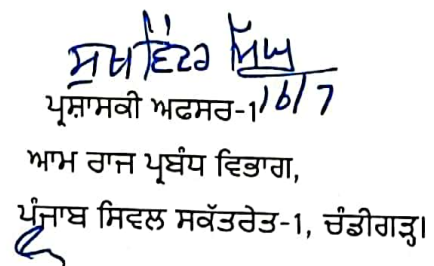 ਸੁਖਵਿੰਦਰ ਸਿੰਘ
16/7
ਪ੍ਰਸ਼ਾਸਕੀ ਅਫਸਰ-1
ਆਮ ਰਾਜ ਪ੍ਰਬੰਧ ਵਿਭਾਗ,
ਪੰਜਾਬ ਸਿਵਲ ਸਕੱਤਰੇਤ-1, ਚੰਡੀਗੜ੍ਹ।